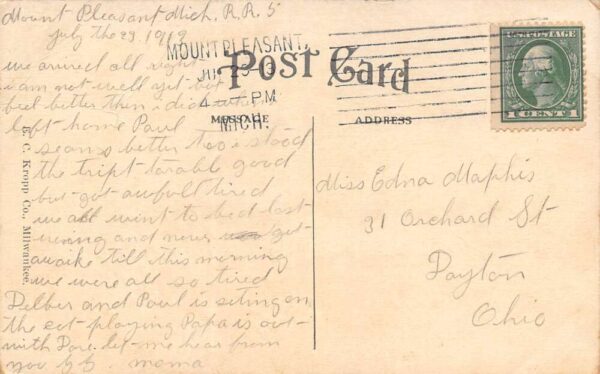 Mount Pleasant Mich. R.R. 5
July the 29 1919
we arrived all right
i am not well yet but
feel better then i did when i
left home Paul
seams better too i stood
the tript torable good
but got awfull tired
we all wint to bed last
evening and never got
awaike till this morning
we were all so tired
Delber and Paul is seting on
the cot playing Papa is out
with Dore. let me hear from
you
moma
MOUNT PLEASANT,
4 PM
MICH.
Post Card
MESSAGE
ADDRESS
U.S. POSTAGE
1 CENT 1
E. C. Kropp Co., Milwaukee.
Miss Edna Maphis
31 Orchard St
Dayton
Ohio